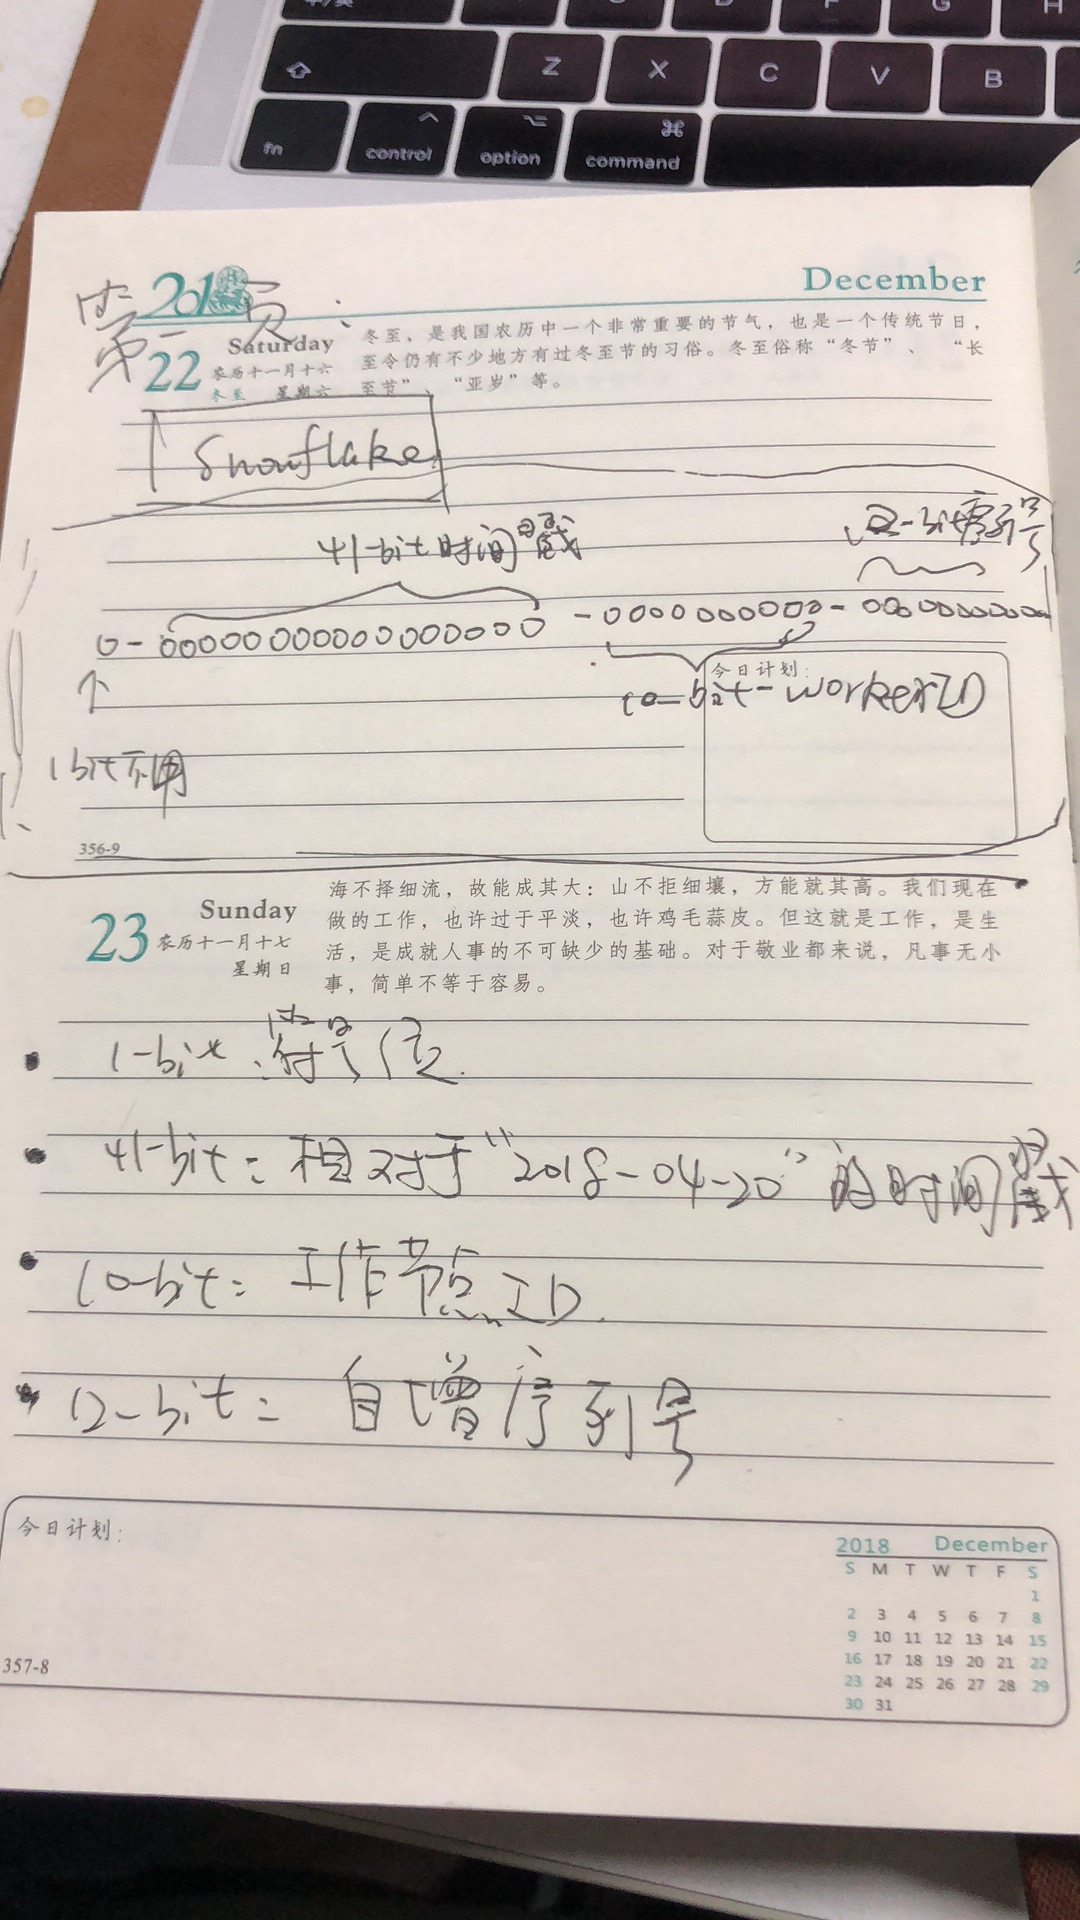 Z X C V B
fn control option command
2018
December
第一页:
22 Saturday
农历十一月十六
冬至 星期六
冬至，是我国农历中一个非常重要的节气，也是一个传统节日，
至令仍有不少地方有过冬至节的习俗。冬至俗称“冬节”、“长
至节”、“亚岁”等。
Snowflake
41-bit 时间戳
12-bit序列号
0-00000000000000000-0000000000-00000000000
今日计划:
10-bit-workerID
1bit不用
356-9
23 Sunday
农历十一月十七
星期日
海不择细流，故能成其大：山不拒细壤，方能就其高。我们现在
做的工作，也许过于平淡，也许鸡毛蒜皮。但这就是工作，是生
活，是成就人事的不可缺少的基础。对于敬业都来说，凡事无小
事，简单不等于容易。
1-bit:符号位.
41-bit: 相对于“2018-04-20”的时间戳
10-bit: 工作节点ID.
12-bit: 自增序列号
今日计划:
2018 December
S M T W T F S
1
2 3 4 5 6 7 8
9 10 11 12 13 14 15
16 17 18 19 20 21 22
23 24 25 26 27 28 29
30 31
357-8